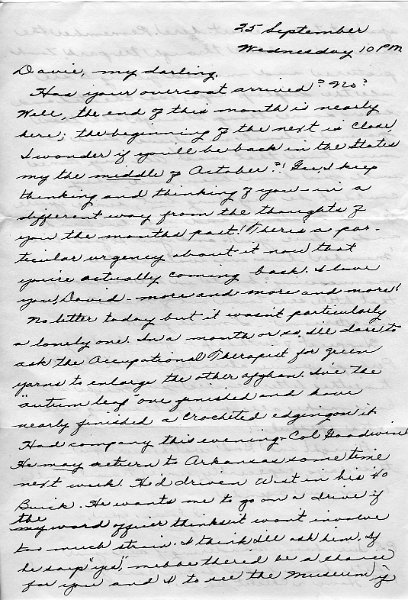 25 September
Wednesday 10 PM
Davie, my darling,
Has your overcoat arrived? No?
Well, the end of this month is nearly
here; the beginning of the next is close.
I wonder if you'll be back in the States
my the middle of October?! Gee, I keep
thinking and thinking of you - in a
different way from the thoughts of
you the months past! There's a par-
ticular urgency about it now that
you're actually coming back. I love
you, David - more and more and more!
No letter today but it wasn't particularly
a lonely one. In a month or so, I'll dare to
ask the Occupational Therapist for green
yarns to enlarge the other afghan. I've the
"autumn leaf" one finished and have
nearly finished a crocheted edging on it.
Had company this evening - Col Goodwin.
He may return to Arkansas some time
next week. He'd driven West in his 40
Buick. He wants me to go on a drive if
the
my ward officer thinks it won't involve
too much strain. I think I'll ask him. If
he says "yes", mebbe there'd be a chance
for you and I to see the Museum, if